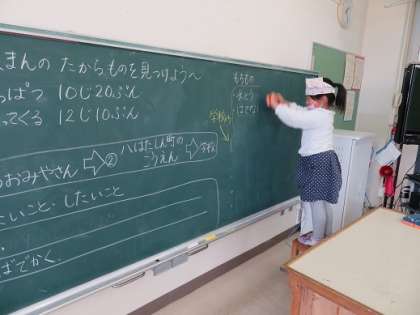 まんの たからものを見つけよう〜
っぱつ 10じ20ぷん
ってくる 12じ10ぷん
おおみやさん ⇨ ② 八はたしん町の こうえん ⇨ 学校
たいこと・したいこと
ばでかく。
もちもの
・水とう
学校から